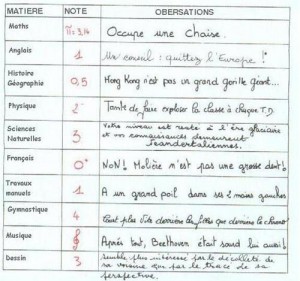 MATIERE NOTE OBERSATIONS
Maths π=3,14 Occupe une chaise.
Anglais 1 Un conseil : quittez l'Europe !
Histoire Géographie 0,5 Hong Kong n'est pas un grand gorille géant...
Physique 2 Tente de faire exploser la classe à chaque T.D.
Sciences Naturelles 3 Votre niveau est resté à l'ère glaciaire
et vos connaissances demeurent
neandertaliennes.
Français 0 NON! Molière n'est pas une grosse dent!
Travaux manuels 1 A un grand poil dans ses 2 mains gauches
Gymnastique 4 Court plus vite derrière les filles que derrière le chrono!
Musique Après tout, Beethoven était sourd lui aussi!
Dessin 3 Semble plus intéressé par le décolleté de
sa voisine que par le tracé de sa
perspective.